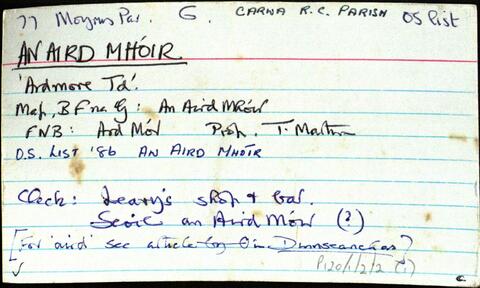 77 Moyrus Par. G. CARNA R.C. PARISH OS List
AN AIRD MHÓIR.
'Ardmore Td'.
Map, B F na G: An Aird Mhóir
FNB: Ard Mór Prop. T. Martin
O.S. LIST '86 AN AIRD MHÓIR
Check: Leary's shop & bar.
Scoil an Aird Móir (?)
[For 'aird' see article by Ó in Dinnseanchas?
P120/1/2/2 (1)
c.